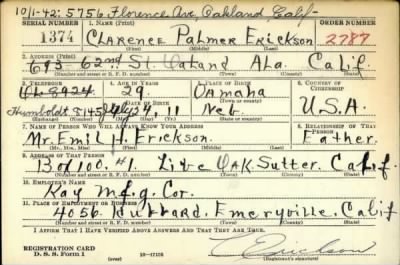 10/1-42: 5756 Florence Ave, Oakland, Calif-
SERIAL NUMBER 1. NAME (Print) ORDER NUMBER
1374 Clarence Palmer Erickson 2787
(First) (Middle) (Last)
2. ADDRESS (Print)
693 62nd St. Oaland Ala. Calif.
(Number and street or R. F. D. number) (Town) (County) (State)
3. TELEPHONE 4. AGE IN YEARS 5. PLACE OF BIRTH 6. COUNTRY OF CITIZENSHIP
OL-8924 29. Omaha
DATE OF BIRTH (Town or county)
Humboldt 5145 July 24, 11 Neb. U.S.A.
(Exchange) (Number) (Mo.) (Day) (Yr.) (State or country)
7. NAME OF PERSON WHO WILL ALWAYS KNOW YOUR ADDRESS 8. RELATIONSHIP OF THAT PERSON
Mr. Emil H. Erickson. Father.
(Mr., Mrs., Miss) (First) (Middle) (Last)
9. ADDRESS OF THAT PERSON
#1. Live Oak. Sutter. Calif.
(Number and street or R. F. D. number) (Town) (County) (State)
10. EMPLOYER'S NAME
Kay Mfg. Cor.
11. PLACE OF EMPLOYMENT OR BUSINESS
4056 Hubbard. Emeryville. Calif
(Number and street or R. F. D. number) (Town) (County) (State)
I AFFIRM THAT I HAVE VERIFIED ABOVE ANSWERS AND THAT THEY ARE TRUE.
REGISTRATION CARD
D. S. S. Form 1 16-17105 C Erickson
(Registrant's signature)